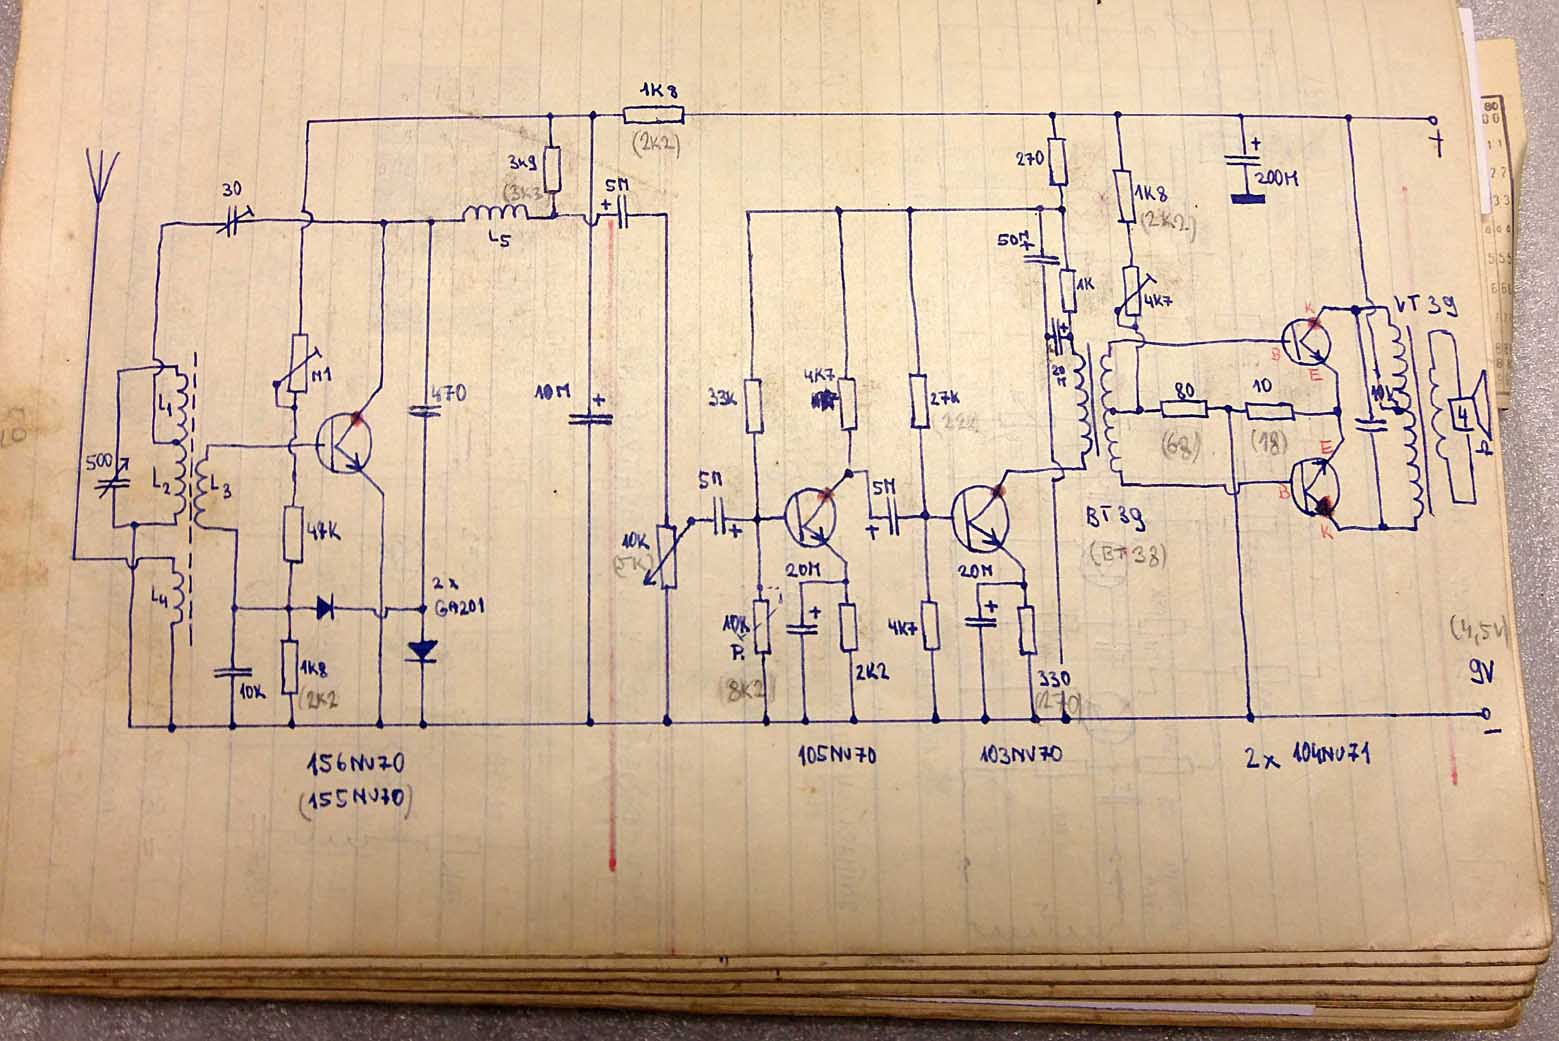 1K8
(2K2)
+
30
3K9
(3K3
5M
270
1K8
(2K2)
+
200M
L5
+
50M
+
1K
4K7
+
20
M
VT 39
K
B
E
M1
L1
470
10M
+
33K
4K7
27K
80
10
10K
4
(68)
(18)
500
L2
L3
5M
+
5M
+
E
B
K
BT 39
(BT 38)
47K
10K
(5K)
L4
2x
GA201
20M
+
20M
+
10K
P.
4K7
(4,5V)
9V
1K8
(2K2
10K
(8K2)
2K2
330
(270)
-
156NU70
(155NU70)
105NU70
103NU70
2x 104NU71